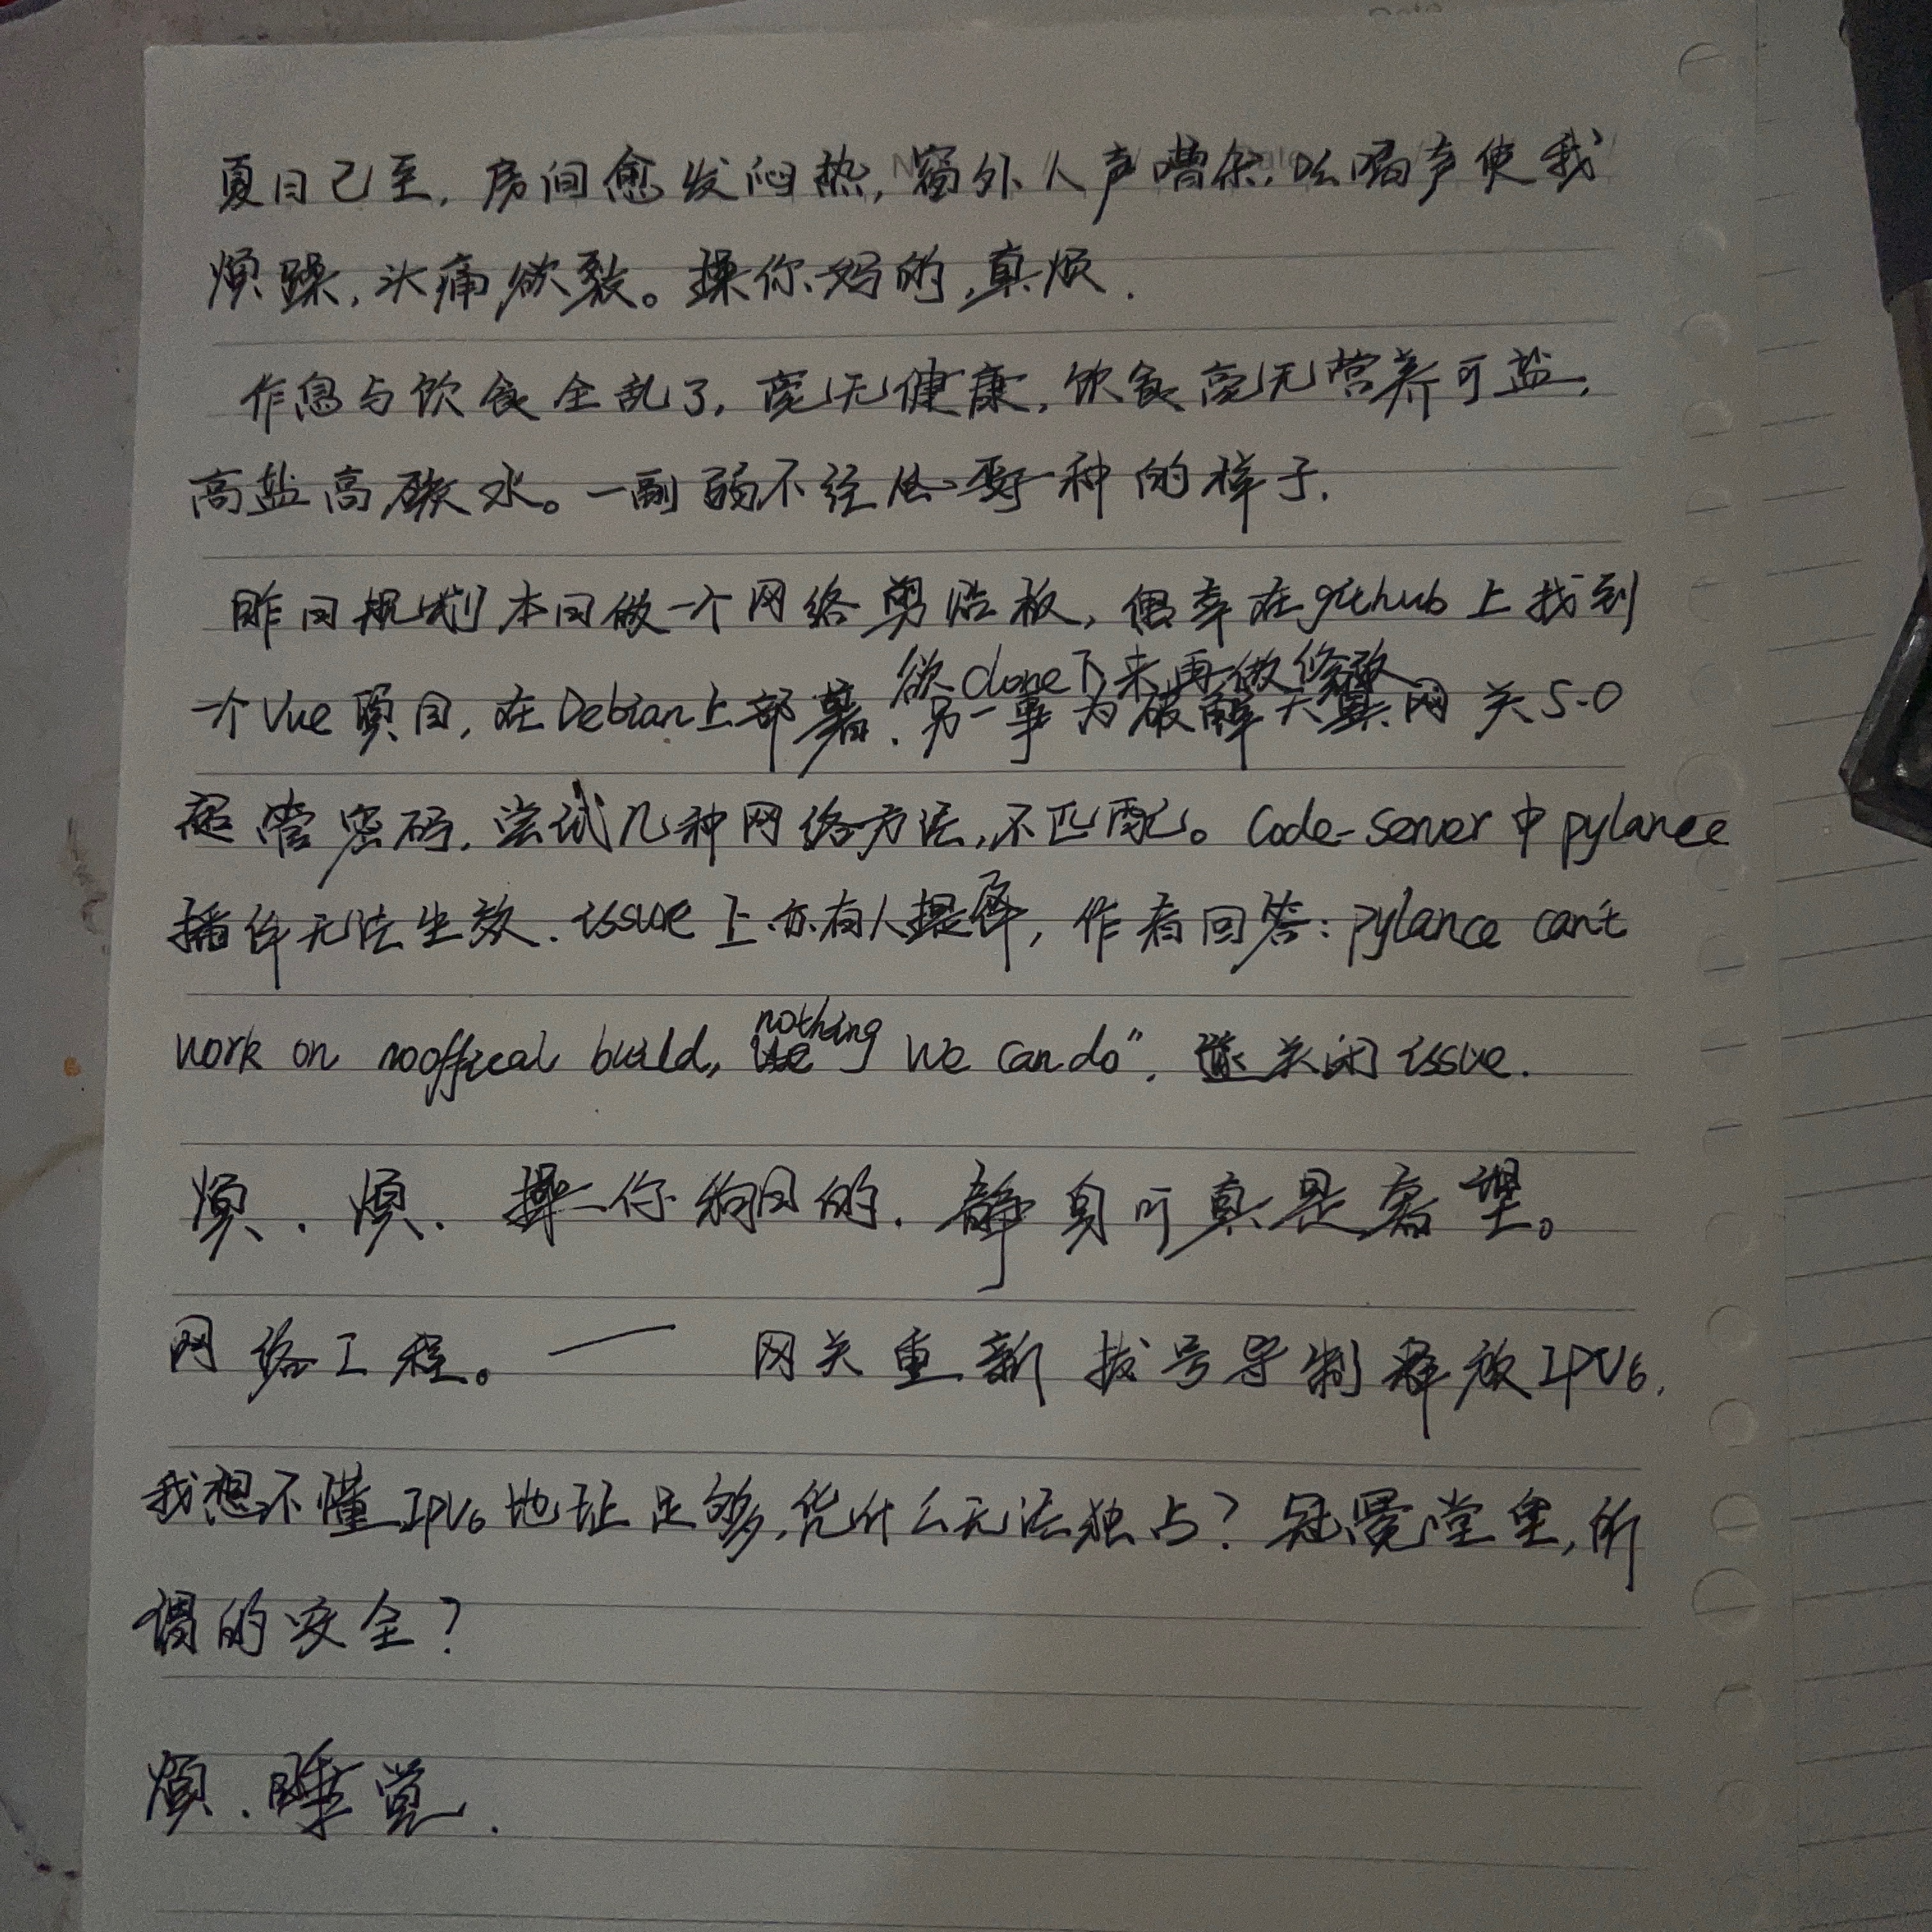 夏日已至，房间愈发闷热，窗外人声嘈杂，吆喝声使我
烦躁，头痛欲裂。操你妈的，真烦．
作息与饮食全乱了，毫无健康，饮食毫无营养可盐，
高盐高碳水。一副弱不经风 一种的样子．
昨日规划本日做一个网络剪贴板，偶幸在github上找到
欲clone下来再做修改
一个Vue项目，在Debian上部署．另一事为破解天翼网关5.0
超管密码，尝试几种网络方法，不匹配。Code-Server中pylance
插件无法生效．issue上亦有人提 ，作者回答：pylance can't
work on nooffical build, nothing we can do"，遂关闭issue．
烦．烦．操你狗日的．静身可真是奢望。
网络工程。—— 网关重新拨号导制释放IPV6，
我想不懂IPV6地址足够，凭什么无法独占？冠冕堂皇，所
谓的安全？
烦．睡觉．